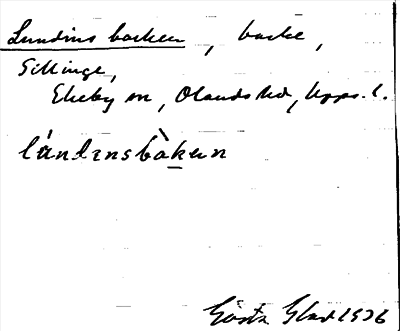 Lundins backen, backe,
Gillinge,
Ekeby sn, Olands hd, Upps. l.
lúndɪnsbàkən
Gösta Glad 1936